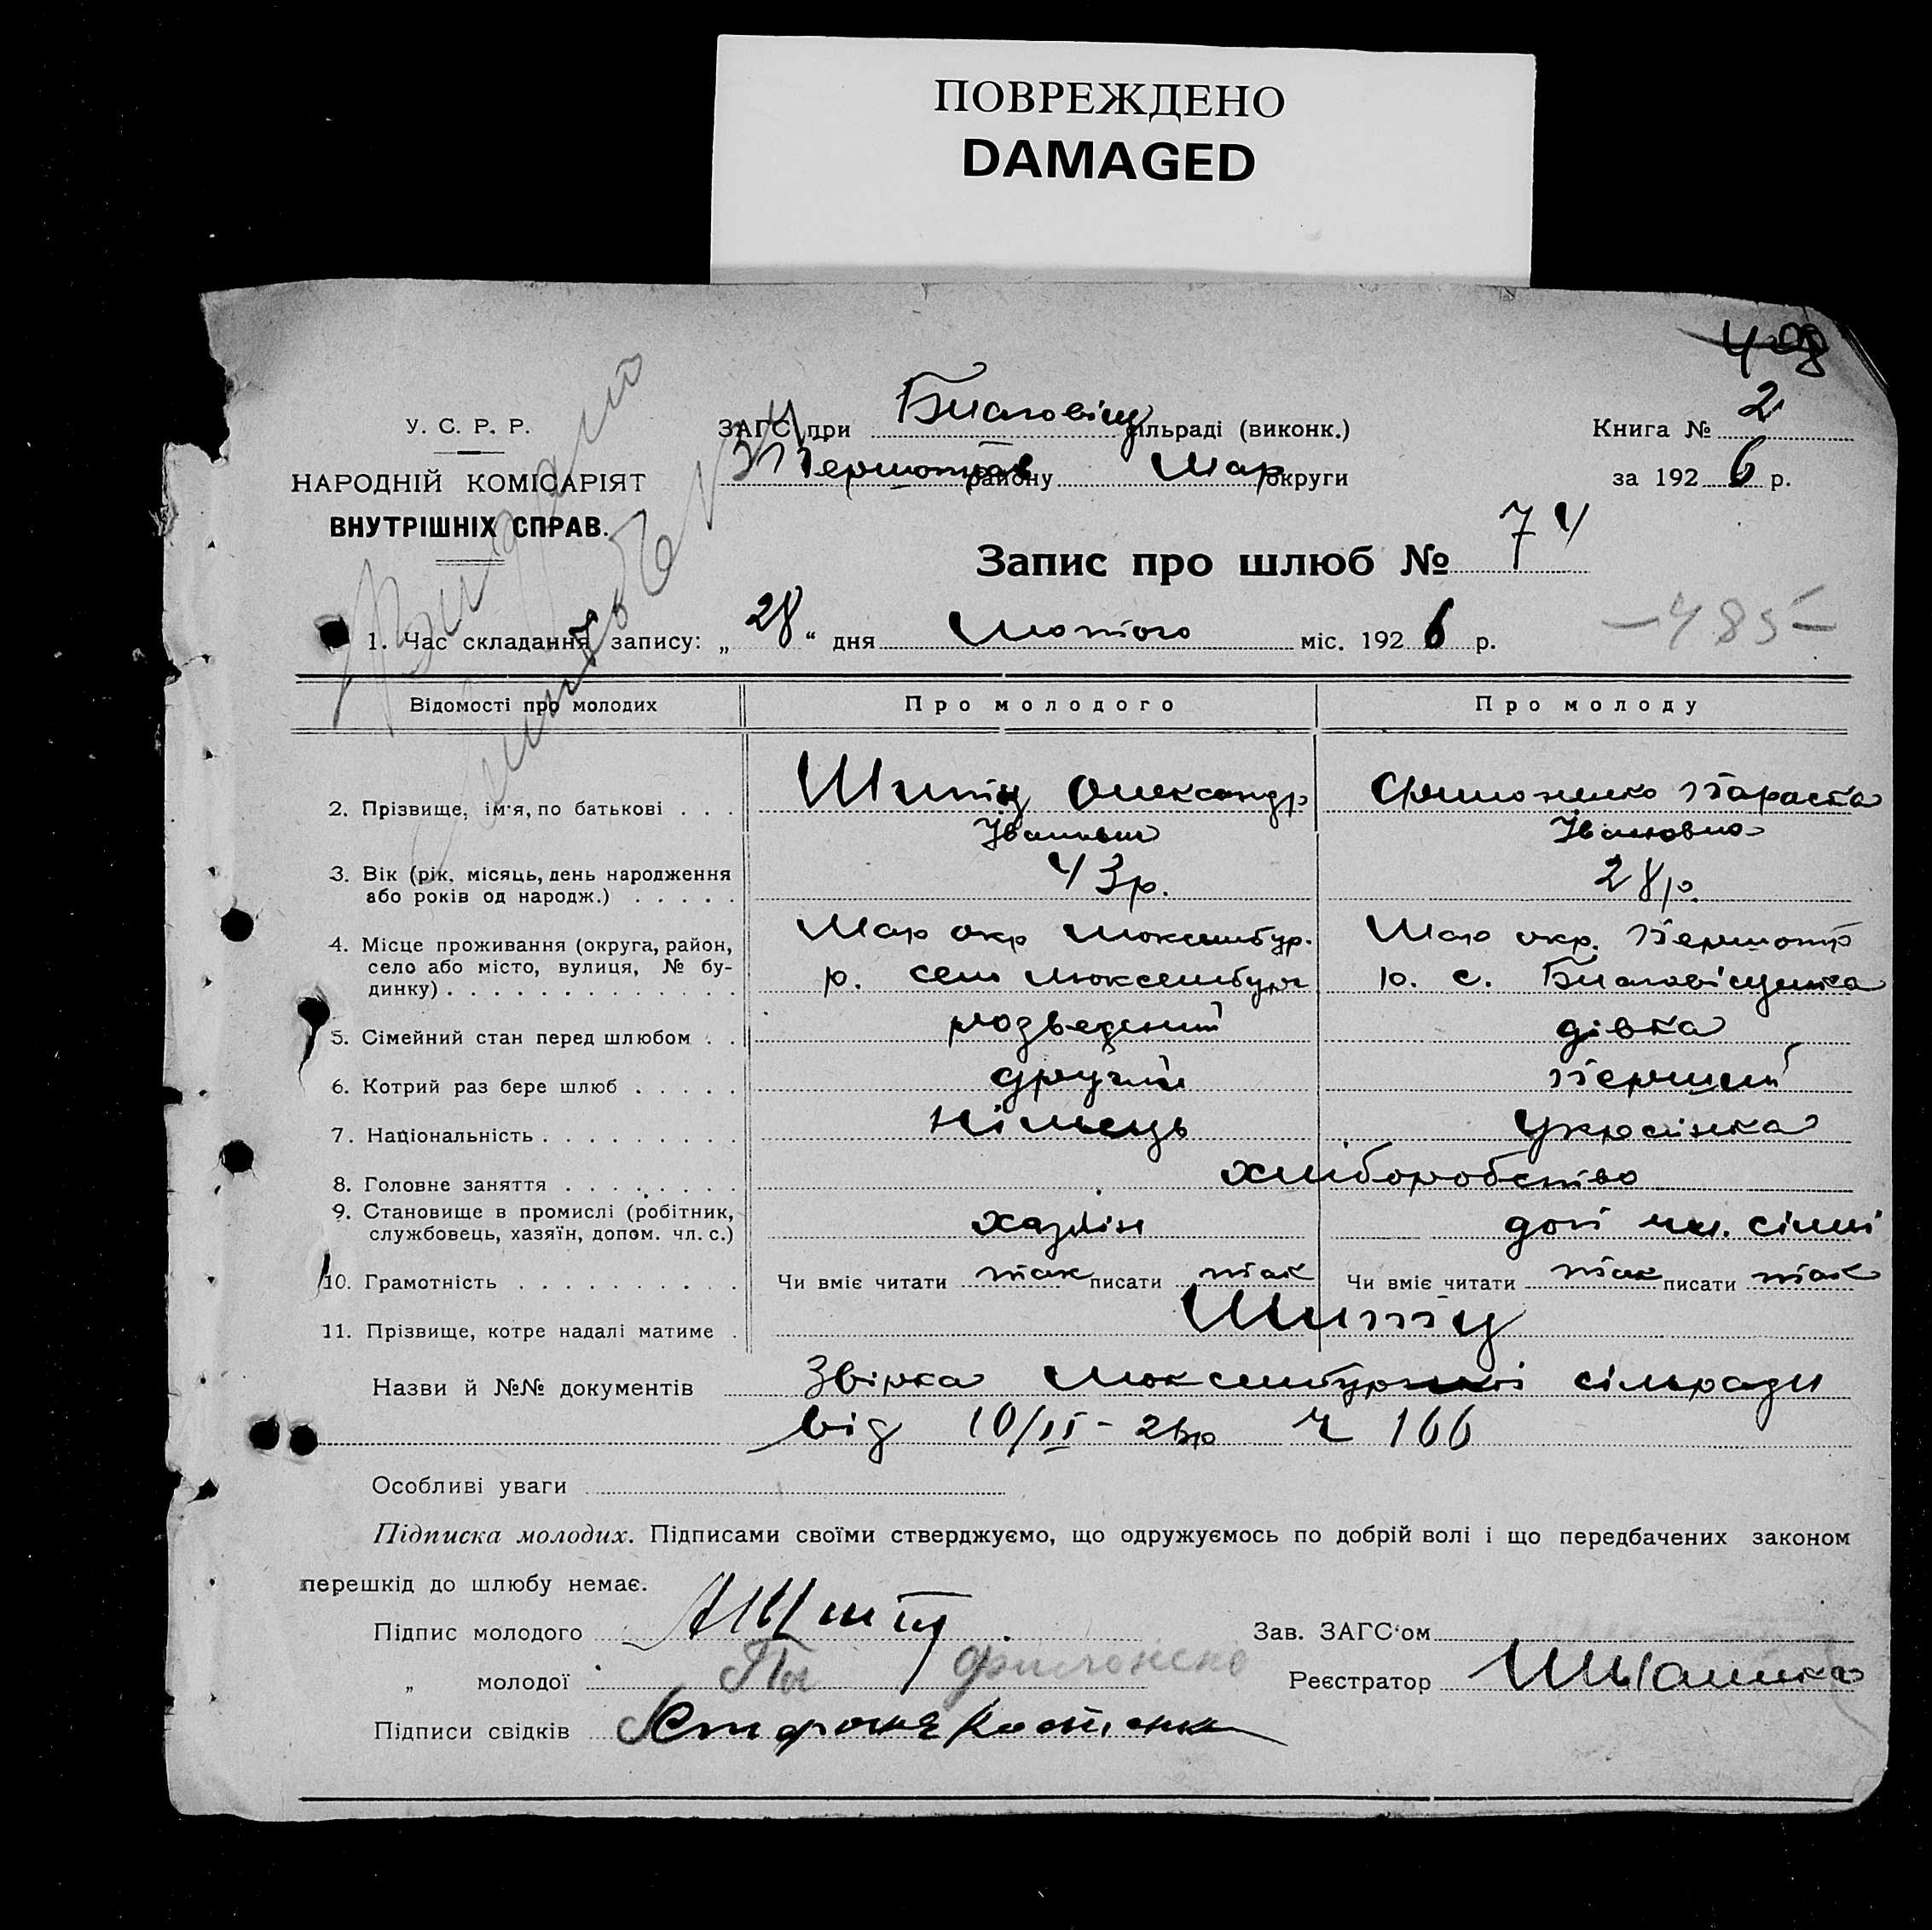 ПОВРЕЖДЕНО
DAMAGED
У. С. Р. Р.
НАРОДНІЙ КОМІСАРІЯТ
ВНУТРІШНІХ СПРАВ.
ЗАГС при Благовіщ сільраді (виконк.)
Першотрав району Мар округи
Книга № 2
за 1926 р.
Запис про шлюб № 74
1. Час складання запису: „28“ дня Лютого міс. 1926 р.
—485—
Відомості про молодих Про молодого Про молоду
2. Прізвище, ім'я, по батькові . . . Шмітц Олександр Филоненко Параска
Іванович Івановна
3. Вік (рік, місяць, день народження 43 р. 28 р.
або років од народж.) . . . . .
4. Місце проживання (округа, район, Мар окр Люксембур. Мар окр. Першотр
село або місто, вулиця, № бу- р. село Люксембург р. с. Благовіщенка
динку) . . . . . . . . . . . . .
5. Сімейний стан перед шлюбом . . розведений дівка
6. Котрий раз бере шлюб . . . . . другий Перший
7. Національність . . . . . . . . . німець українка
8. Головне заняття . . . . . . . . хліборобство
9. Становище в промислі (робітник, хазяін доп чл. сімі
службовець, хазяїн, допом. чл. с.)
10. Грамотність . . . . . . . . . . Чи вміє читати так писати так Чи вміє читати так писати так
11. Прізвище, котре надалі матиме . Шмітц
Назви й №№ документів Звірка Люксембургкої сільради
від 10/II - 26 р ч 166
Особливі уваги
Підписка молодих. Підписами своїми стверджуємо, що одружуємось по добрій волі і що передбачених законом
перешкід до шлюбу немає.
Підпис молодого АШмітц Зав. ЗАГС'ом
„ молодої Филонено Реєстратор
Підписи свідків